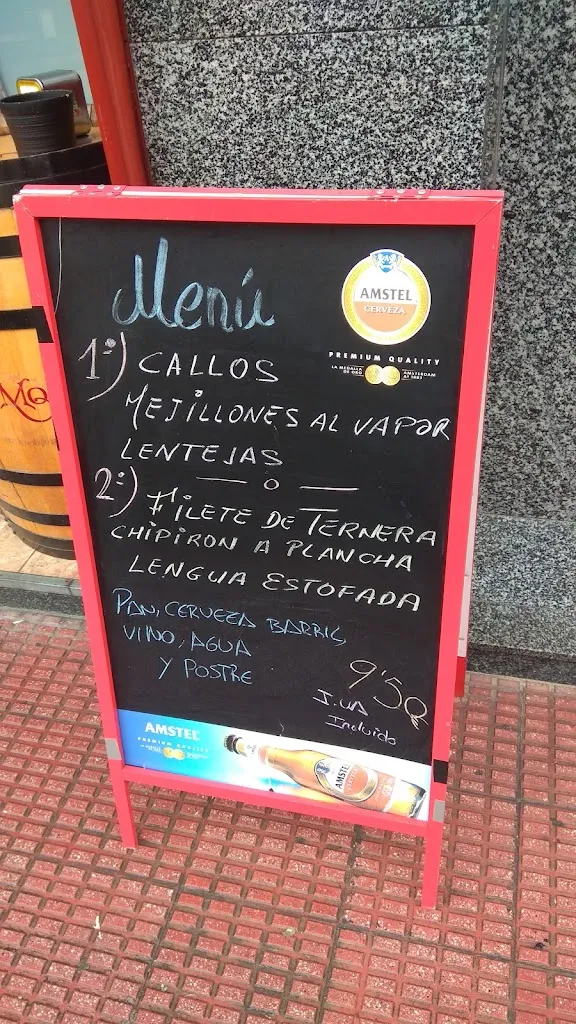 Menú
AMSTEL
CERVEZA
PREMIUM QUALITY
LA MEDALLA DE ORO
AMSTERDAM AT 1883
1º) CALLOS
MEJILLONES AL VAPOR
LENTEJAS
— o —
2º) FILETE DE TERNERA
CHIPIRON A PLANCHA
LENGUA ESTOFADA
PAN, CERVEZA BARRIL,
VINO, AGUA
Y POSTRE
9'50€
I.VA
Incluido
AMSTEL
PREMIUM QUALITY
AMSTEL